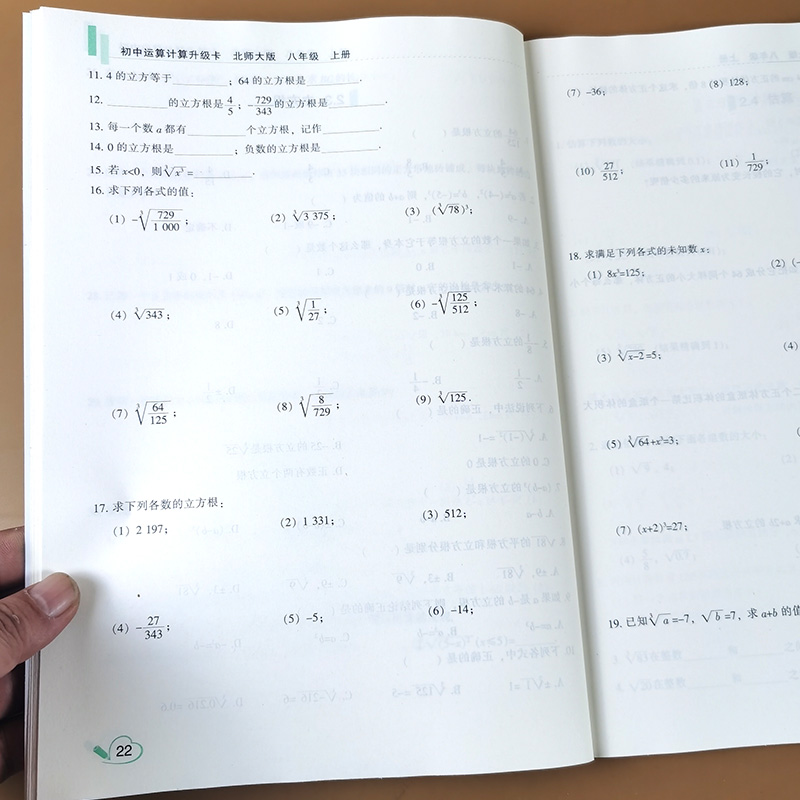 初中运算计算升级卡 北师大版 八年级 上册
11. 4 的立方等于________；64 的立方根是________.
12. ________的立方根是4/5；-729/343的立方根是________.
13. 每一个数 a 都有________个立方根，记作________.
14. 0 的立方根是________；负数的立方根是________.
15. 若 x<0，则∛x³=________.
16. 求下列各式的值：
(1) -∛(729/1 000)； (2) ∛3 375； (3) (∛78)³；
(4) ∛343； (5) ∛(1/27)； (6) -∛(125/512)；
(7) ∛(64/125)； (8) ∛(8/729)； (9) ∛125.
17. 求下列各数的立方根：
(1) 2 197； (2) 1 331； (3) 512；
(4) -27/343； (5) -5； (6) -14；
22
(7) -36； (8) 128；
(10) 27/512； (11) 1/729；
18. 求满足下列各式的未知数 x：
(1) 8x³=125； (2) (-
(3) ∛(x-2)=5； (4)
(5) ∛64+x³=3；
(7) (x+2)³=27；
19. 已知∛a=-7，√b=7，求 a+b 的值